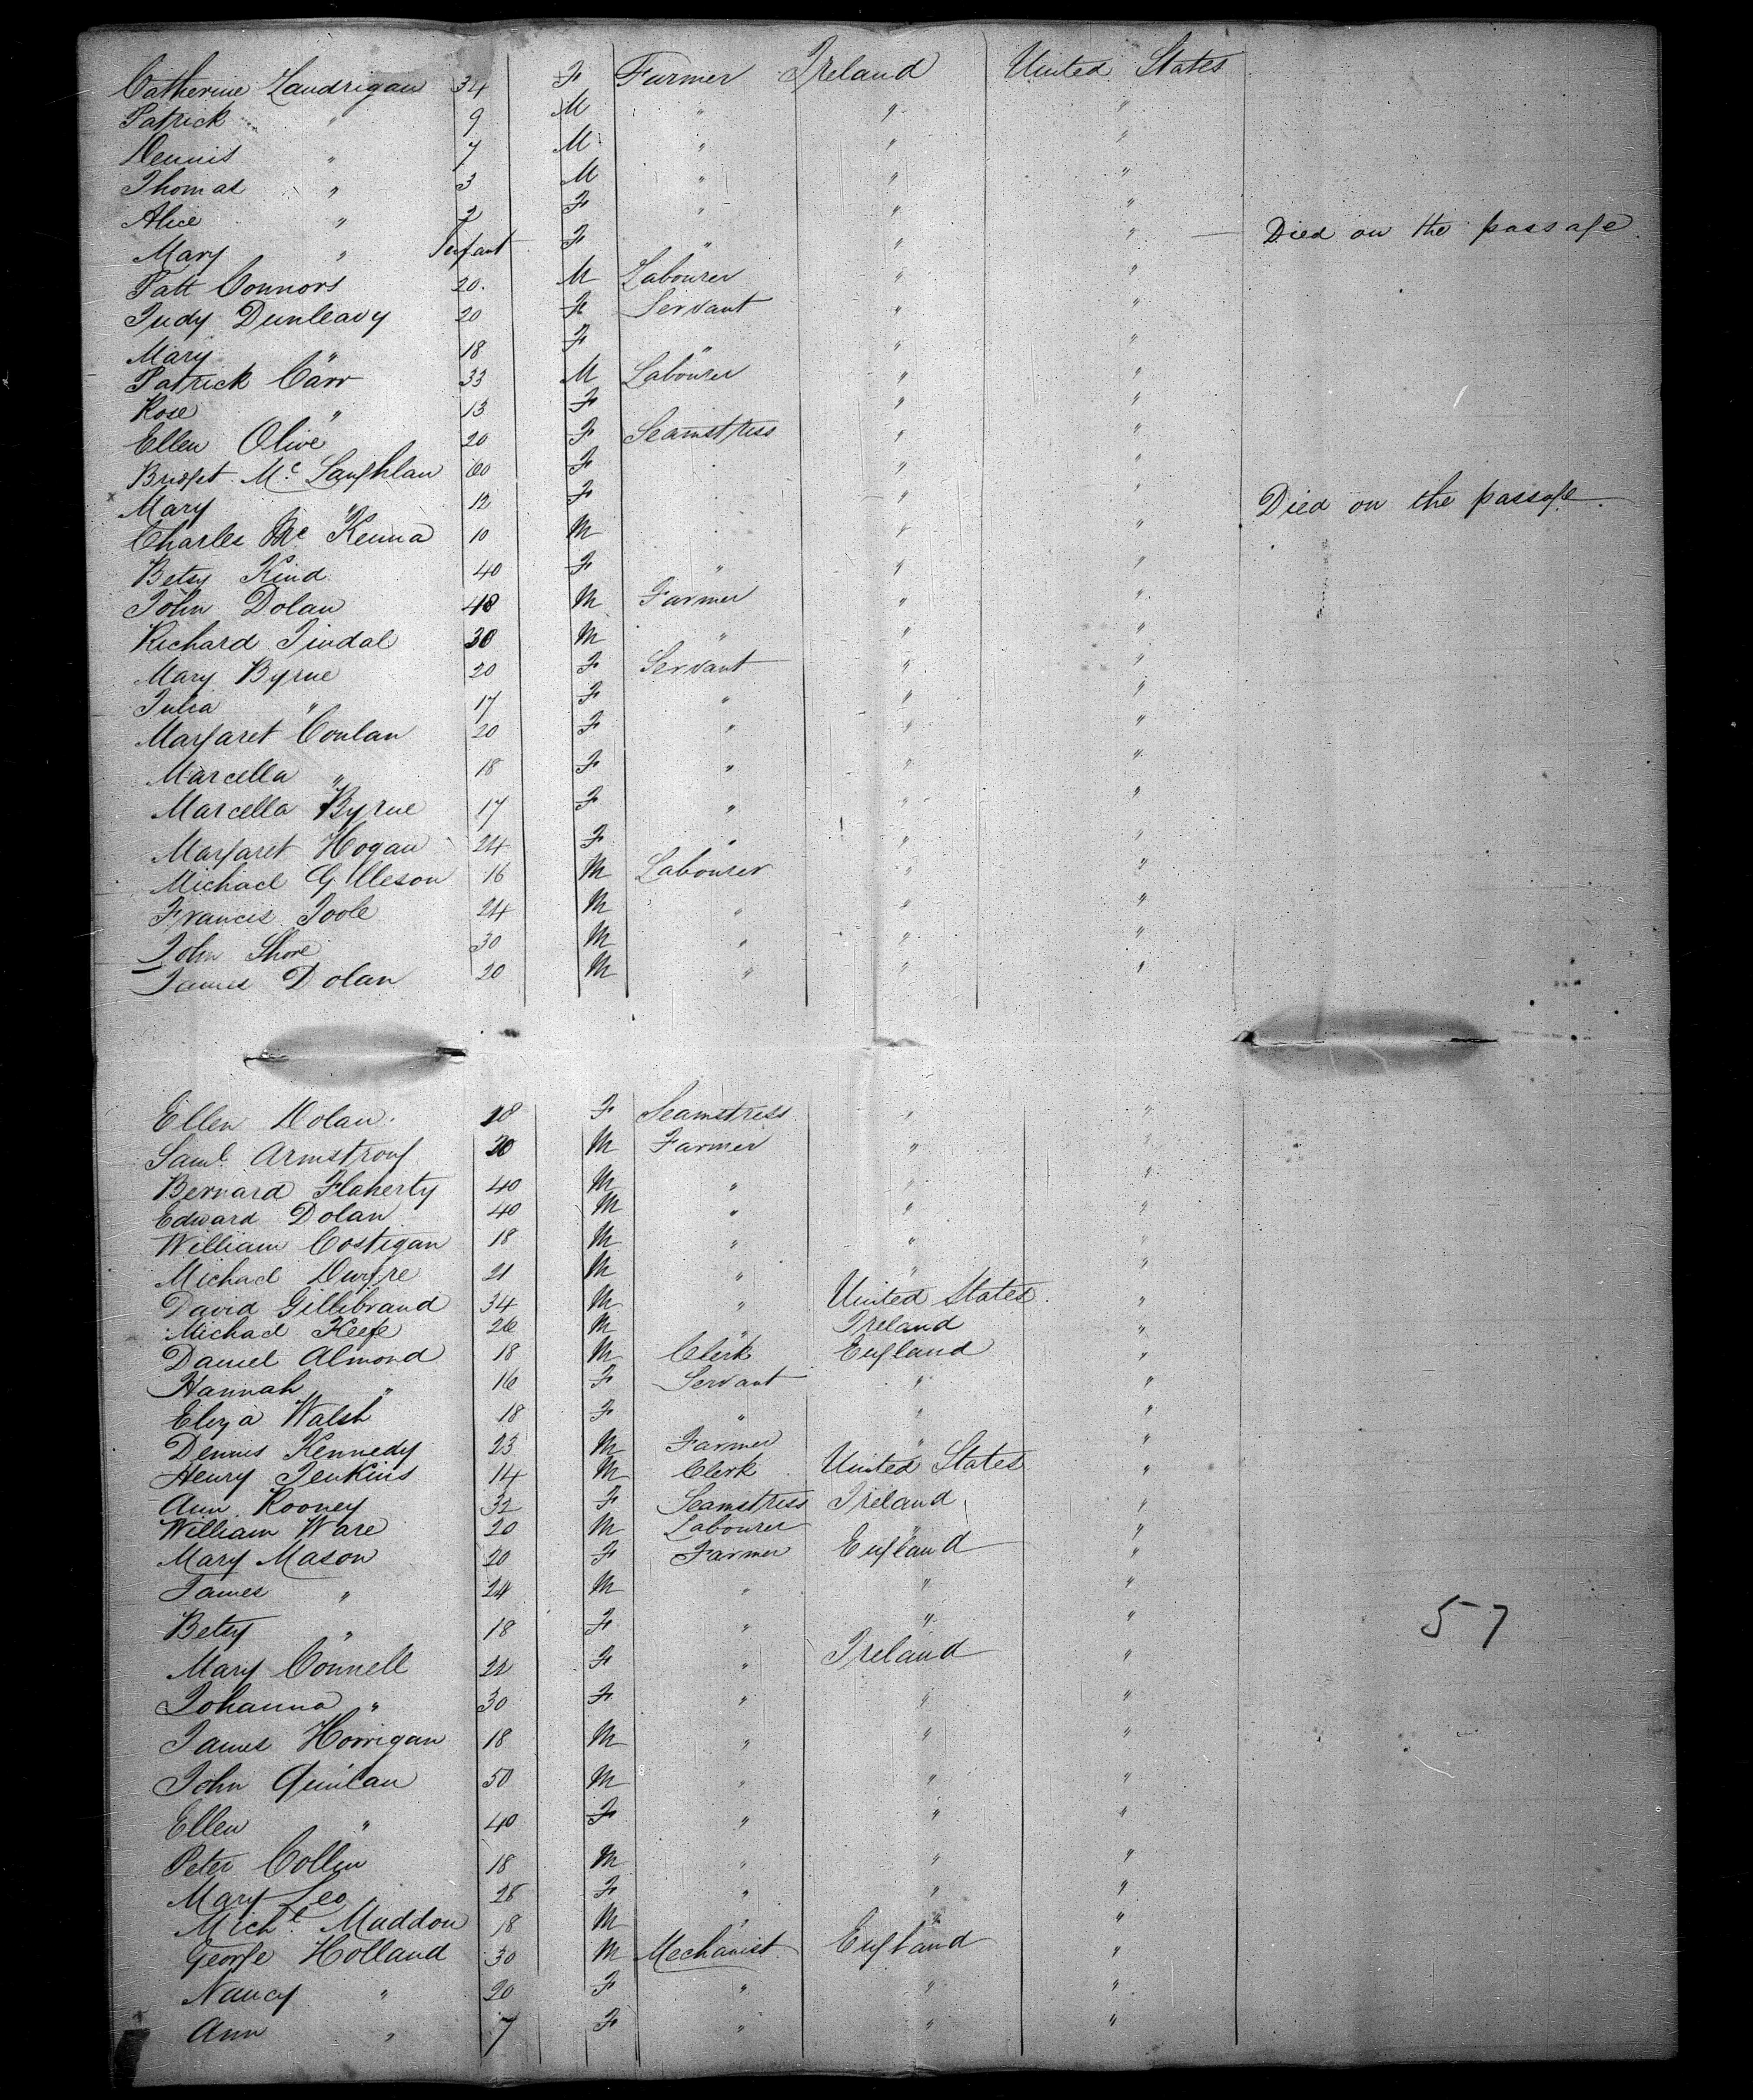 Catherine Landrigan 34 F Farmer Ireland United States
Patrick " 9 M " " "
Dennis " 7 M " " "
Thomas " 3 M " " "
Alice " 2 F " " "
Mary " Infant F " " " Died on the passage
Patt Connors 20 M Labourer " "
Judy Dunleavy 20 F Servant " "
Mary " 18 F " " "
Patrick Carr 33 M Labourer " "
Rose " 13 F " "
Ellen Olive 20 F Seamstress " "
Bridget Mc Laughlan 60 F " "
Mary " 12 F " " Died on the passage
Charles Mc Kenna 10 M " "
Betsy Kind 40 F " " "
John Dolan 48 M Farmer " "
Richard Tindal 30 M " " "
Mary Byrne 20 F Servant " "
Julia " 17 F " " "
Margaret Conlan 20 F " " "
Marcella " 18 F " " "
Marcella Byrne 17 F " " "
Margaret Hogan 24 F " " "
Michael Gilleson 16 M Labourer " "
Francis Toole 24 M " " "
John Shore 30 M " " "
James Dolan 20 M " " "
Ellen Dolan 18 F Seamstress " "
Saml. Armstrong 20 M Farmer " "
Bernard Flaherty 40 M " " "
Edward Dolan 40 M " " "
William Costigan 18 M " " "
Michael 21 M " " "
David Gillibrand 34 M " United States "
Michael Keefe 26 M " Ireland "
Daniel Almond 18 M Clerk England "
Hannah " 16 F Servant " "
Eliza Walsh 18 F " " "
Dennis Kennedy 23 M Farmer " "
Henry Jenkins 14 M Clerk United States "
Ann Rooney 32 F Seamstress Ireland "
William Ware 20 M Labourer " "
Mary Mason 20 F Farmer England "
James " 24 M " " "
Betsy " 18 F " " "
57
Mary Connell 22 F " Ireland "
Johanna " 30 F " " "
James Horrigan 18 M " " "
John Quinlan 50 M " " "
Ellen " 40 F " " "
Peter Collin 18 M " " "
Mary Leo 28 F " " "
Michl. Maddon 18 M " " "
George Holland 30 M Mechanist England "
Nancy " 20 F " " "
Ann " 7 F " " "